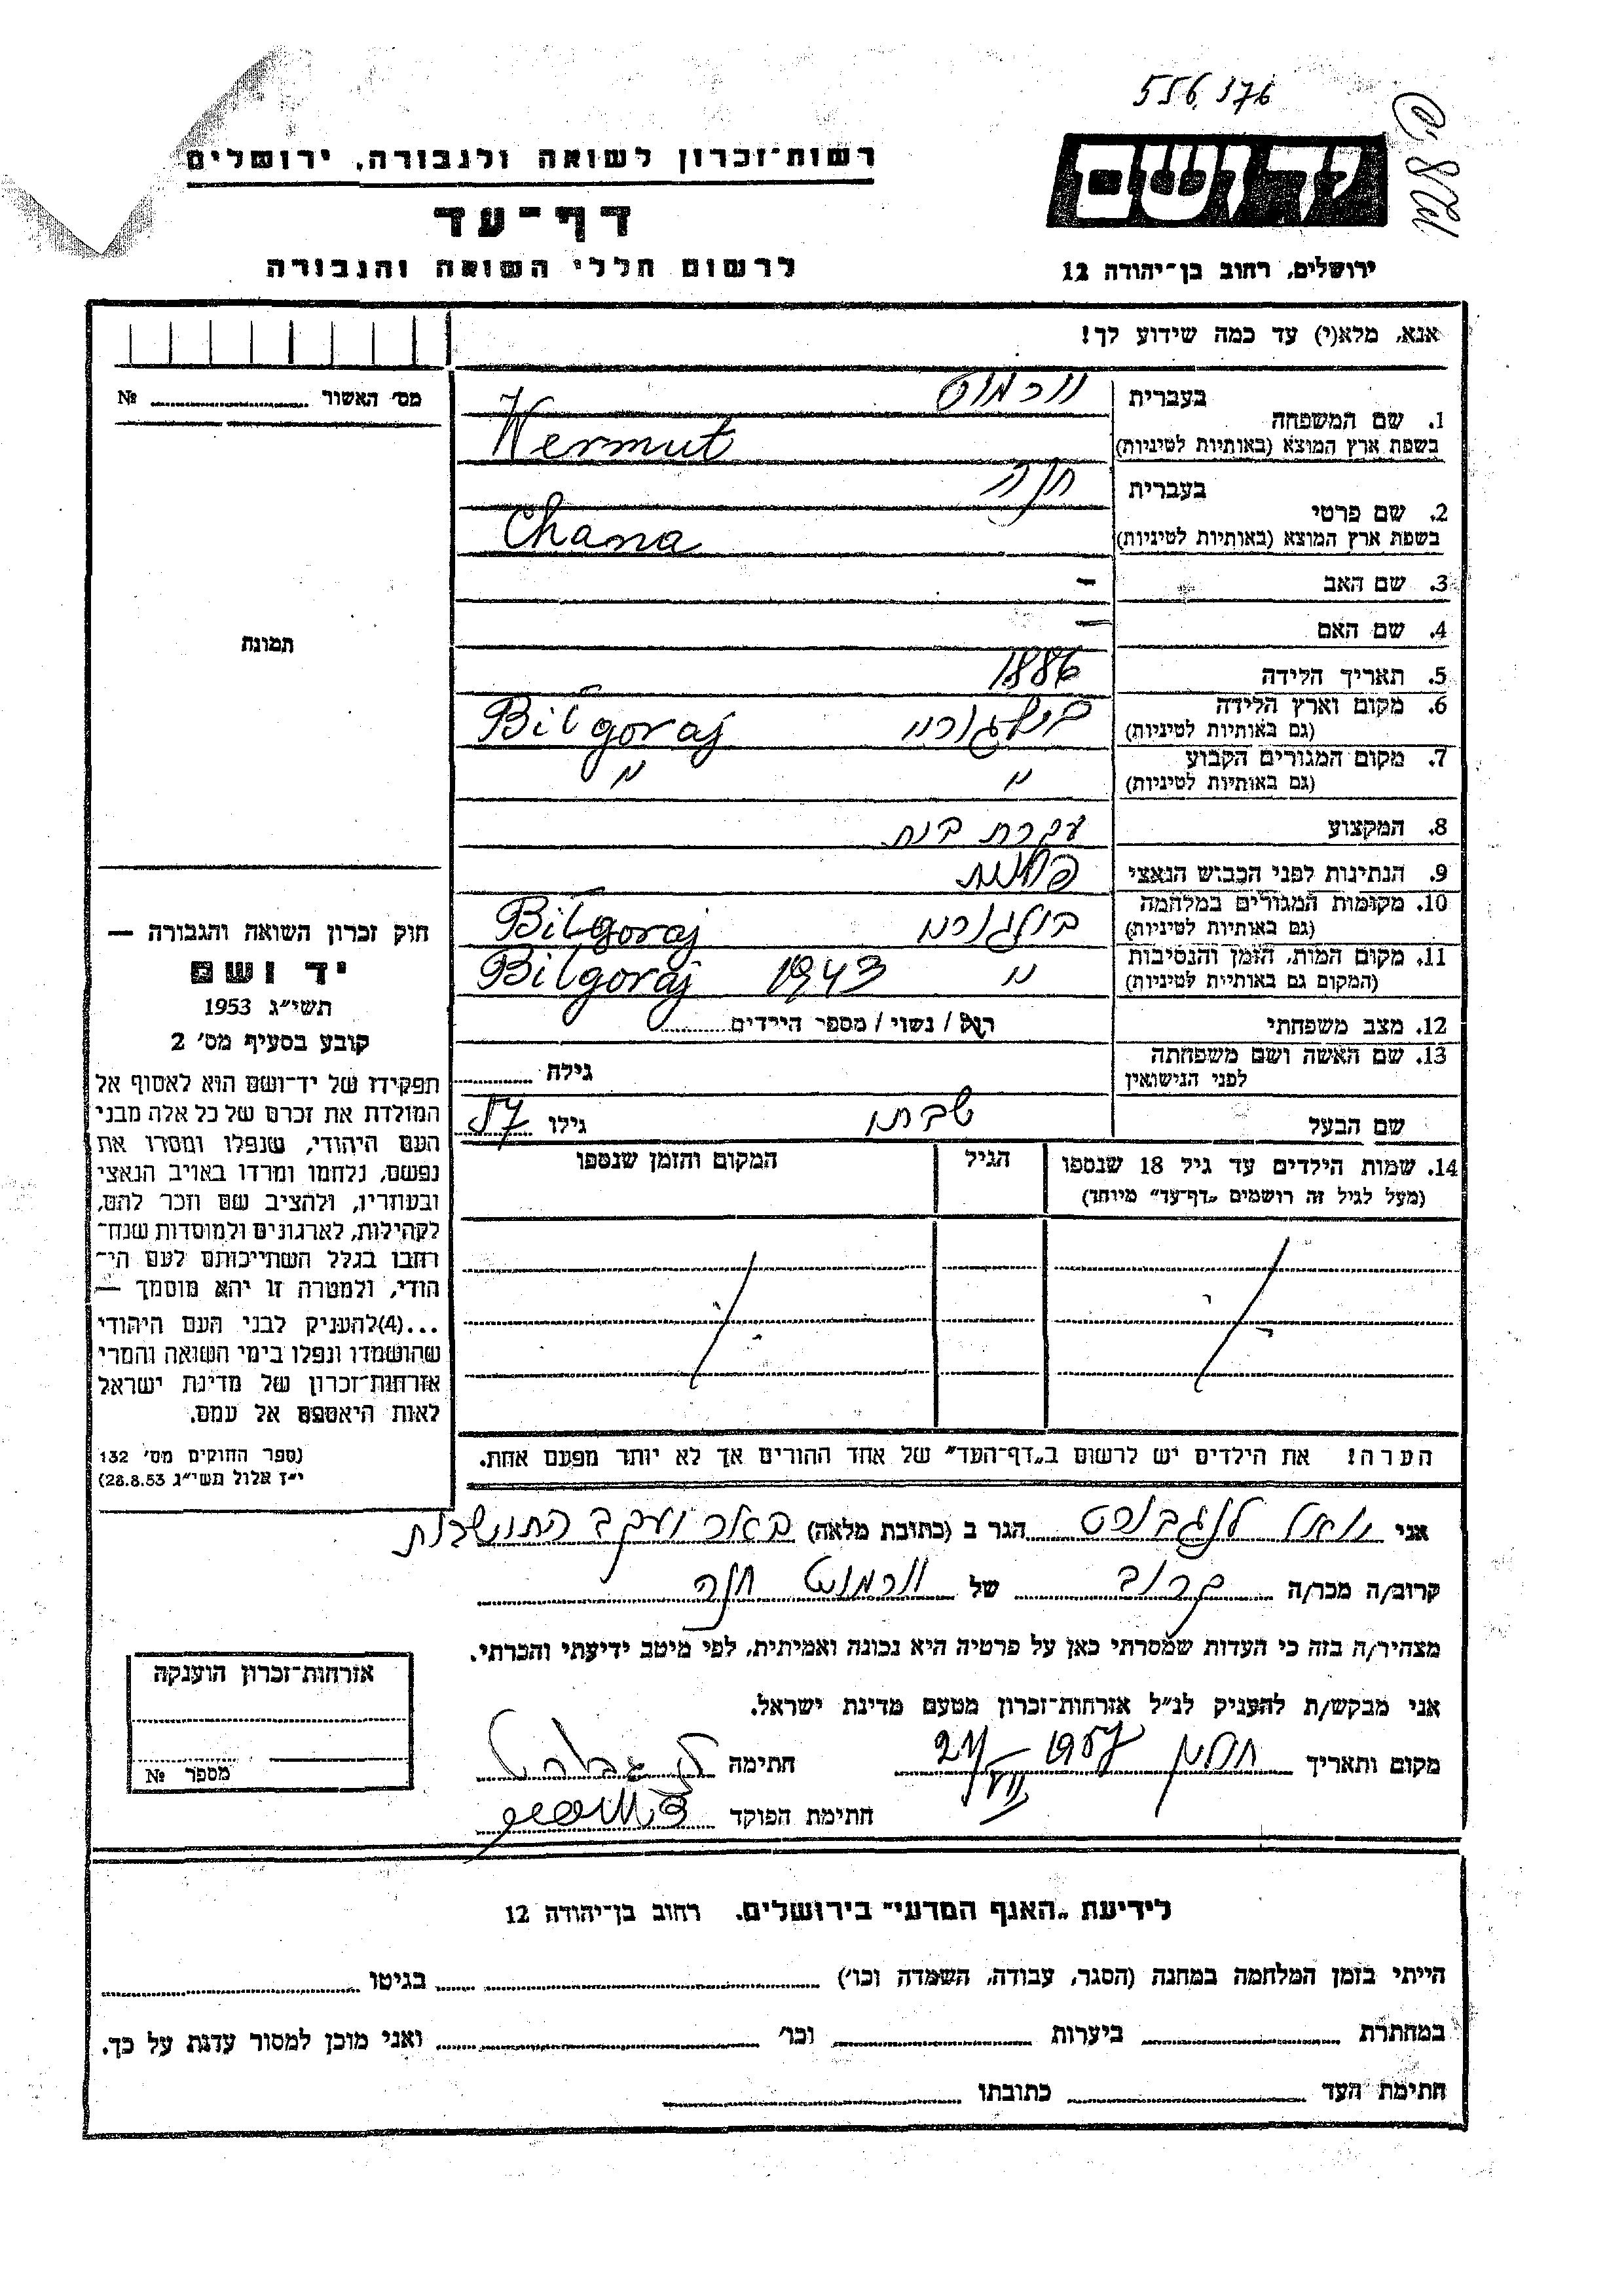 556,376
רשות־זכרון לשואה ולגבורה, ירושלים
יד ושם
דף־עד
לרשום חללי השואה והגבורה
ירושלים, רחוב בן־יהודה 12
אנא, מלא(י) עד כמה שידוע לך!
מס׳ האשור № 
1. שם המשפחה
בעברית ורמוט
בשפת ארץ המוצא (באותיות לטיניות) Wermut
2. שם פרטי
בעברית חנה
בשפת ארץ המוצא (באותיות לטיניות) Chana
3. שם האב -
4. שם האם -
תמונה
5. תאריך הלידה 1886
6. מקום וארץ הלידה בילגורי Biłgoraj
(גם באותיות לטיניות)
7. מקום המגורים הקבוע " "
(גם באותיות לטיניות)
8. המקצוע עקרת בית
9. הנתינות לפני הכבוש הנאצי פולנית
10. מקומות המגורים במלחמה בילגורי Biłgoraj
(גם באותיות לטיניות)
11. מקום המות, הזמן והנסיבות " 1943 Biłgoraj
(המקום גם באותיות לטיניות)
12. מצב משפחתי רוק / נשוי / מספר הילדים
13. שם האשה ושם משפחתה
לפני הנישואין גילה
שם הבעל שבתי גילו 57
14. שמות הילדים עד גיל 18 שנספו הגיל המקום והזמן שנספו
(מעל לגיל זה רושמים „דף־עד” מיוחד)
הערה! את הילדים יש לרשום ב„דף־העד” של אחד ההורים אך לא יותר מפעם אחת.
חוק זכרון השואה והגבורה —
יד ושם
תשי״ג 1953
קובע בסעיף מס׳ 2
תפקידו של יד־ושם הוא לאסוף אל
המולדת את זכרם של כל אלה מבני
העם היהודי, שנפלו ומסרו את
נפשם, נלחמו ומרדו באויב הנאצי
ובעוזריו, ולהציב שם וזכר להם,
לקהילות, לארגונים ולמוסדות שנח־
רחבו בגלל השתייכותם לעם הי־
הודי, ולמטרה זו יהא מוסמך —
...(4)להעניק לבני העם היהודי
שהושמדו ונפלו בימי השואה והמרי
אזרחות־זכרון של מדינת ישראל
לאות היאספם אל עמם.
(ספר החוקים מס׳ 132
י״ז אלול תשי״ג 28.8.53)
אני יואל לנגבורט הגר ב (כתובת מלאה) באר יעקב התושבות
קרוב/ה מכר/ה קרוב של ורמוט חנה
מצהיר/ה בזה כי העדות שמסרתי כאן על פרטיה היא נכונה ואמיתית, לפי מיטב ידיעתי והכרתי.
אני מבקש/ת להעניק לנ״ל אזרחות־זכרון מטעם מדינת ישראל.
מקום ותאריך 1957 חתימה
חתימת הפוקד
אזרחות־זכרון הוענקה
מספר №
לידיעת „האגף המדעי” בירושלים. רחוב בן־יהודה 12
הייתי בזמן המלחמה במחנה (הסגר, עבודה, השמדה וכו׳) בגיטו
במחתרת ביערות וכו׳ ואני מוכן למסור עדות על כך.
חתימת העד כתובתו